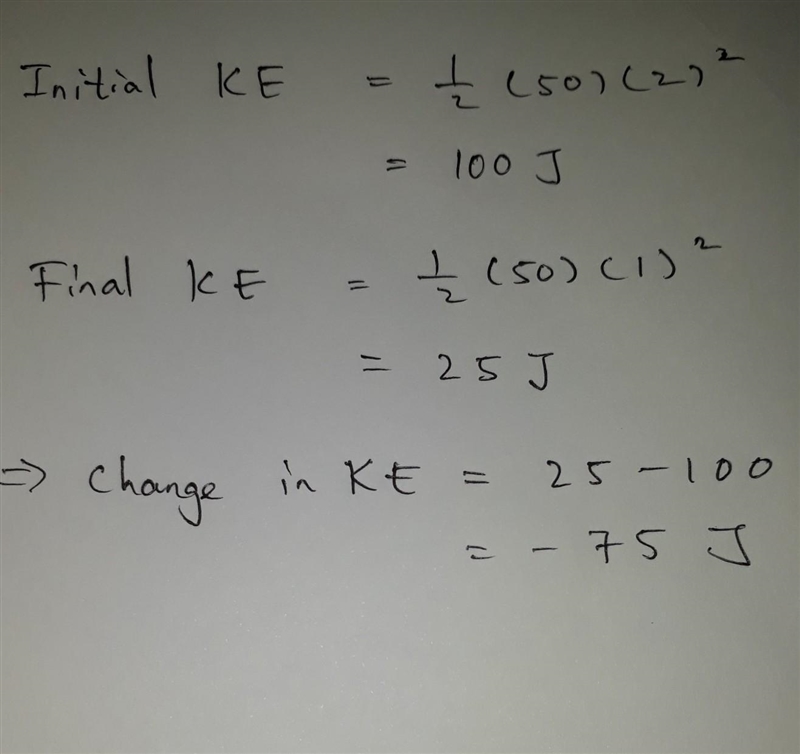 Initial KE = 1/2 (50)(2)²
= 100 J
Final KE = 1/2 (50)(1)²
= 25 J
⇒ Change in KE = 25 - 100
= - 75 J